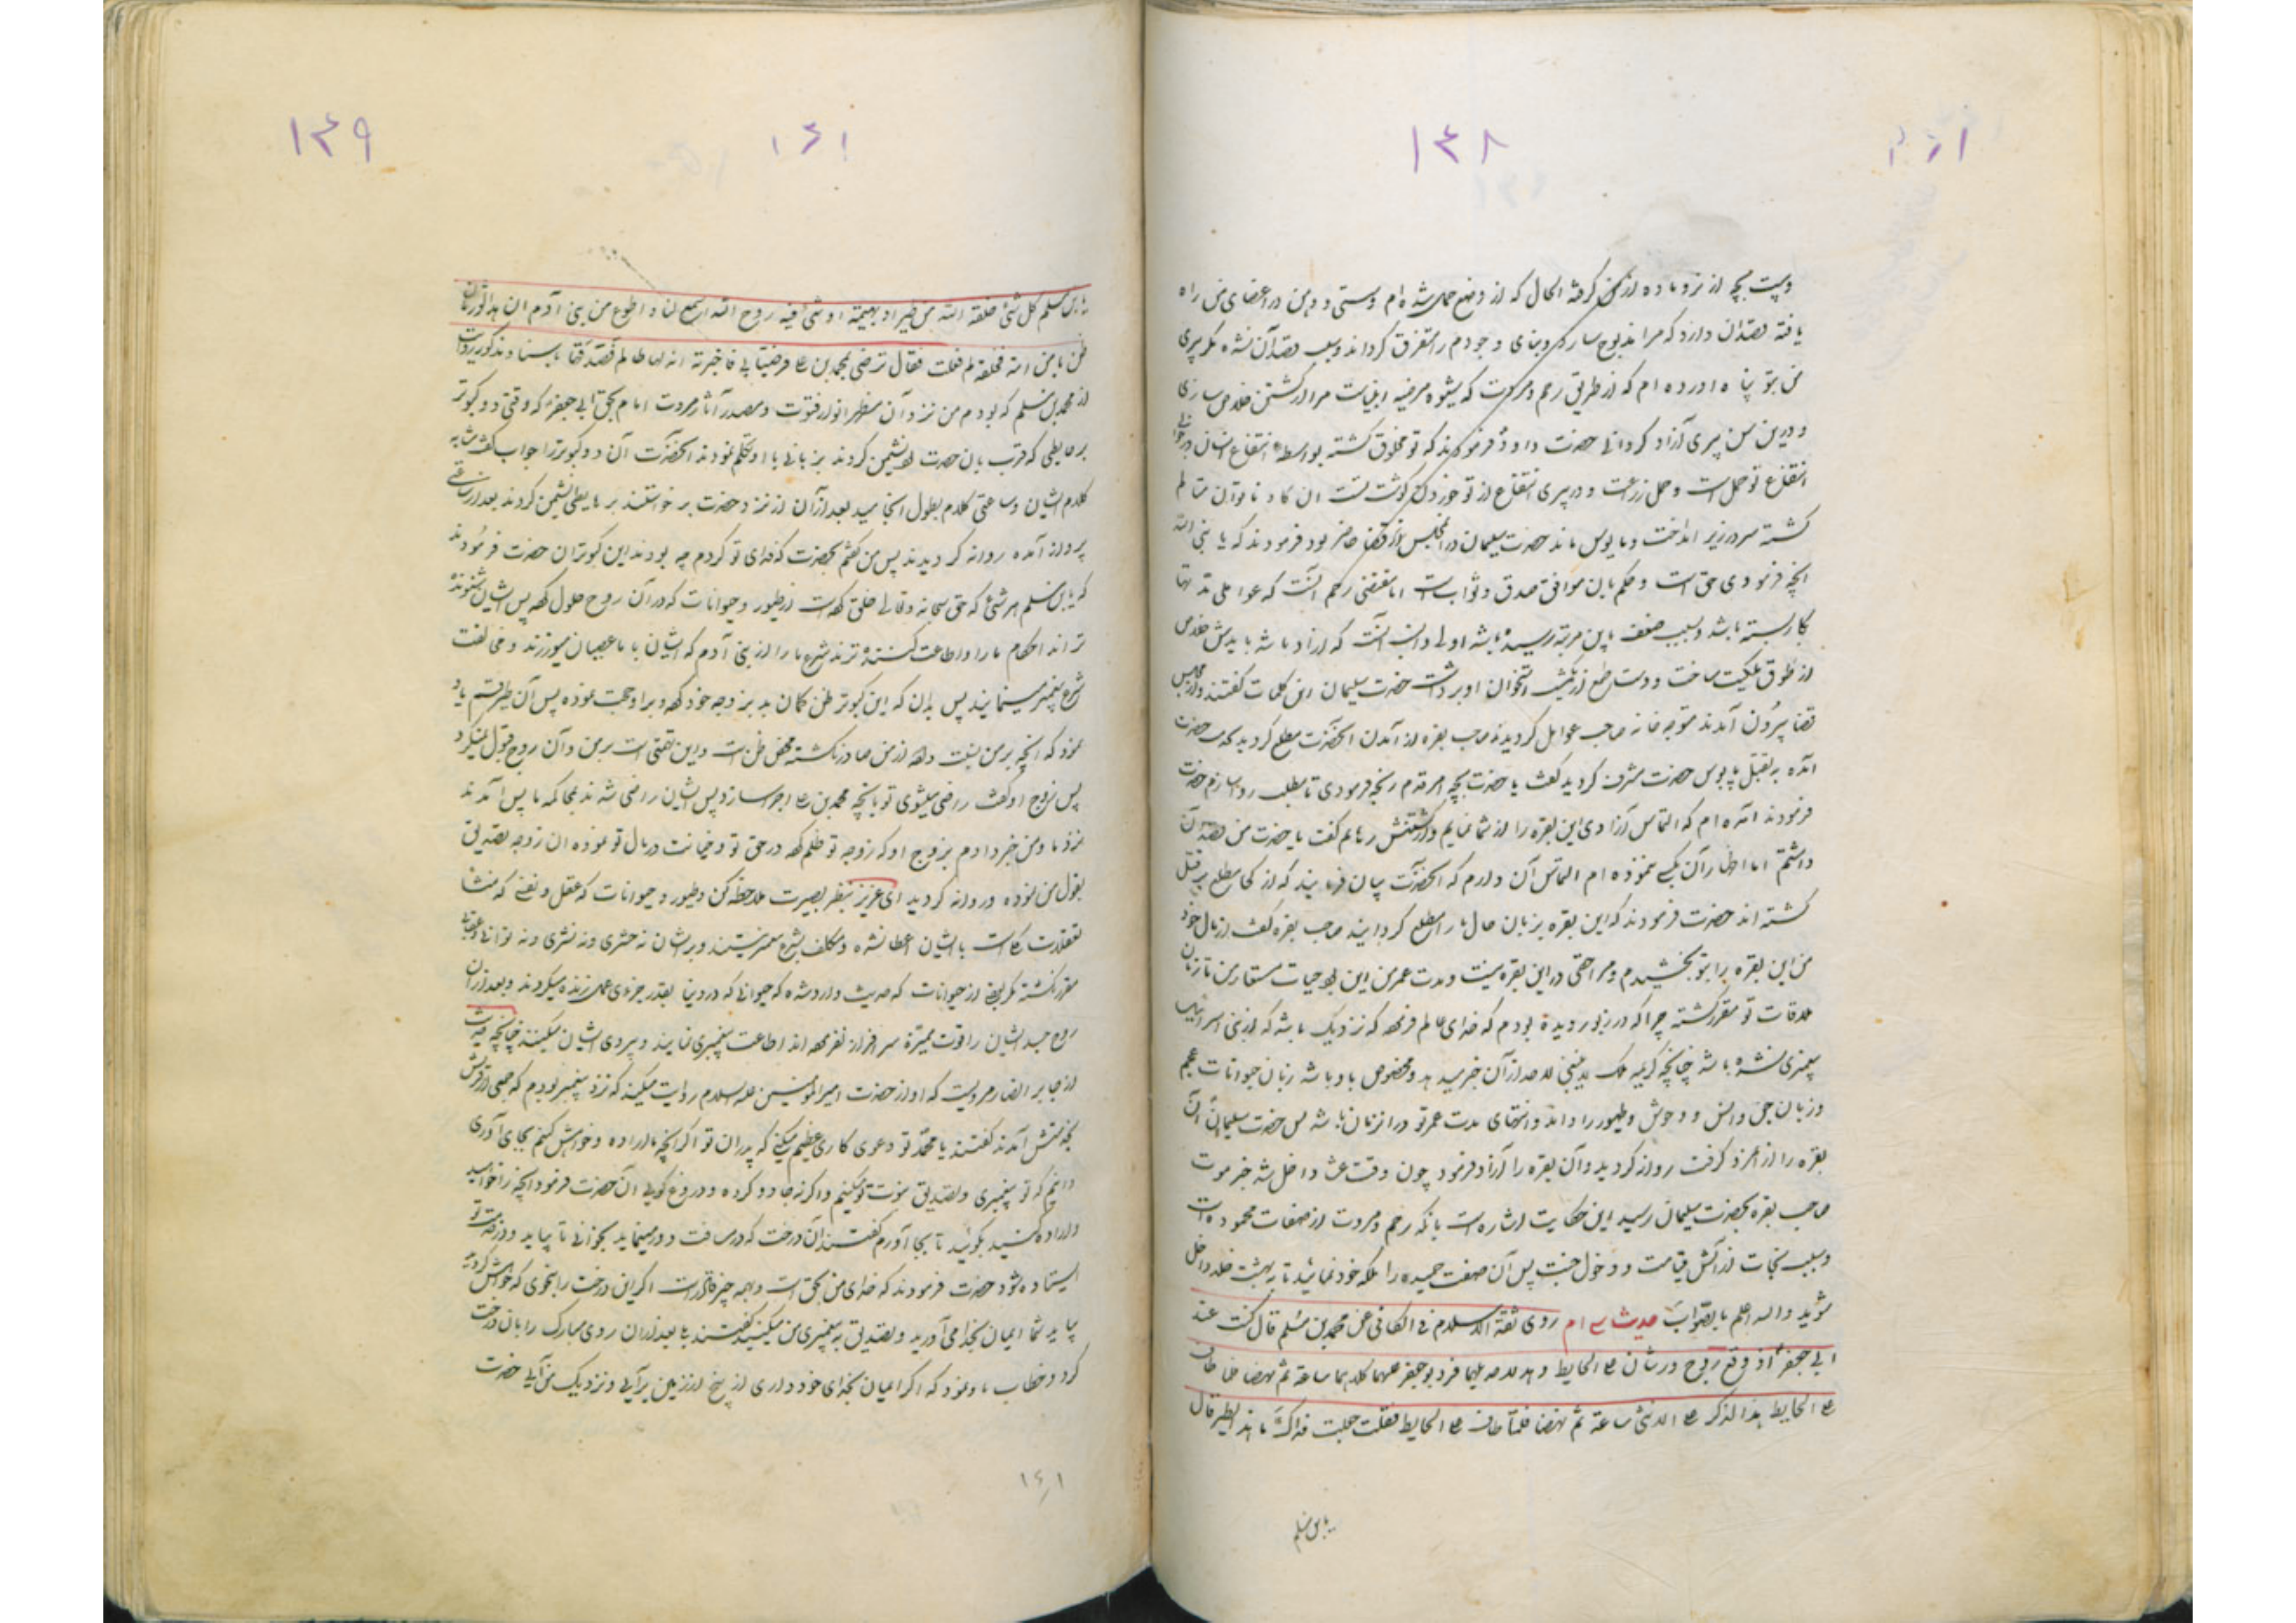 ۱۴۸
و بیست بچه از نر و ماده از من گرفته الحال که از وضع حمل شده‌ام و سستی و وهن در اعضای من راه
یافته قصد آن دارد که مرا مذبوح سازد و بنای وجودم را متفرق گرداند و سبب قصد آن نشده مگر پیری
من بتو پناه آورده‌ام که از طریق رحم و مروت که شیوه مرضیه انبیاست مرا از کشتن خلاص سازی
و درین سن پیری آزاد گردانی حضرت داود فرمودند که تو مخلوق گشته بواسطه انتفاع انسان در جوانی
انتفاع تو حمل است و حمل زراعت و در پیری انتفاع از تو خوردن گوشت تست آن گاو ناتوان متالم
گشته سر در زیر انداخت و مایوس ماند حضرت سلیمان در آن مجلس حاضر بود فرمودند که یا نبی الله
آنچه فرمودی حق است و حکم باین موافق صدق و ثواب است اما مقتضی رحم آنست که عواملی که مدتها
کار بسته باشد و بسبب ضعف باین مرتبه رسیده باشد اولی و انسب آنست که آزاد باشد بایدش خلاص
از طوق ملکیت ساخت و دست طمع از گوشت و استخوان او برداشت حضرت سلیمان این کلمات گفتند و از مجلس
قضا بیرون آمدند متوجه خانه صاحب عوامل گردیدند صاحب بقره از آمدن آنحضرت مطلع گردید بخدمت حضرت
آمده به تقبیل پابوس حضرت مشرف گردید گفت یا حضرت بچه امر قدم رنجه فرمودی تا مطلب روا سازم حضرت
فرمودند آمده‌ام که التماس آزادی این بقره را از شما نمایم و از کشتنش رهانم گفت یا حضرت من قصد آن
داشتم اما اظهار آن بکسی ننموده‌ام التماس آن دارم که آنحضرت بیان فرمایند که از کجا مطلع بر قتل
گشته‌اند حضرت فرمودند که این بقره بزبان حال ما را مطلع گردانید صاحب بقره گفت از مال خود
من این بقره را بتو بخشیدم و مرا حقی در این بقره نیست و مدت عمر من این بود حیات مستعار من تا زمان
ملاقات تو مقرر گشته چرا که در زبور دیده بودم که خدای عالم فرموده که نزدیک باشد که از بنی اسرائیل
پیغمبری نشده باشد چنانچه کریمه ملک لا ینبغی لاحد از آن خبر میدهد و مخصوص باو باشد زبان حیوانات عجم
و زبان جن و انس و وحوش و طیور را داند و انتهای مدت عمر تو در آن زمان باشد پس حضرت سلیمان آن
بقره را از مرد گرفت روانه گردید و آن بقره را آزاد فرمود چون وقت عشا داخل شد خبر موت
صاحب بقره بحضرت سلیمان رسید این حکایت اشاره است بآنکه رحم و مروت از صفات محموده است
و سبب نجات از آتش قیامت و دخول جنت پس آن صفت حمیده را ملکه خود نمائید تا به بهشت خلد داخل
شوید والله اعلم بالصواب حدیث سی ام روی ثقة الاسلام فی الکافی عن محمد بن مسلم قال کنت عند
ابی جعفر اذ وقع زوج ورشان علی الحایط و هدلا هدیلهما فرد ابو جعفر علیهما کلامهما ساعة ثم نهضا فلما طارا
علی الحایط هذا الذکر علی الانثی ساعة ثم نهضا فلما طارا علی الحایط فقلت جعلت فداک ما هذا الطیر قال
یا بن مسلم
۱۴۹
۱۶۱
یا بن مسلم کل شیء خلقه الله من طیر او بهیمة او شیء فیه روح الله اسمع لنا و اطوع من بنی آدم ان هذا الورشان
ظن بامرأته فحلفت له ما فعلت فقال ترضی بمحمد بن علی فرضیا بی فاخبرته انه لها ظالم فصدقها باسناد مذکور روایت
از محمد بن مسلم که بودم من نزد آن مظهر انوار فتوت و مصدر آثار مروت امام بحق ابی جعفر که وقتی دو کبوتر
بر حایطی که قریب بآن حضرت بود نشیمن کردند بزبانی با او تکلم نمودند آنحضرت آن دو کبوتر را جواب گفت شبه
کلام ایشان و ساعتی کلام بطول انجامید بعد از آن از نزد حضرت برخواستند بر حایطی نشیمن کردند بعد از ساعتی
پرواز آمده روانه گردیدند پس من گفتم بحضرت که فدای تو گردم چه بودند این کبوتران حضرت فرمودند
که یا بن مسلم هر شیء که حق سبحانه و تعالی خلق کرده است از طیور و حیوانات که در آن روح حلول کرده پس ایشان شنونده
تر اند احکام ما را و اطاعت کننده‌ترند شرع ما را از بنی آدم که ایشان با ما عصیان میورزند و مخالفت
شرع پیغمبر مینمایند پس بدان که این کبوتر ظن گمان بد بزوجه خود کرده و بر او حجت نموده پس آن طیر قسم یاد
نمود که آنچه بر من نسبت داده از من صادر نگشته محض ظن است و این تهمتی است بر من و آن زوج قبول نمیکرد
پس زوج او گفت راضی میشوی تو بآنچه محمد بن علی اجرا سازد پس ایشان راضی شدند بمحاکمه ما پس آمدند
نزد ما و من خبر دادم بزوج او که زوجه تو ظلم کرده در حق تو و خیانت در مال تو نموده آن زوجه تصدیق
بقول من نموده و روانه گردید ای عزیز بنظر بصیرت ملاحظه کن و طیور و حیوانات که عقل و نفسی که منشأ
تعقلات است بایشان اعطا نشده و مکلف بشرع پیغمبر نیستند و برایشان نه حشری و نه نشری و نه ثوابی و عقابی
مقرر نگشته مگر بعضی از حیوانات که حدیث وارد شده که حیوانی که در دنیا بقدر جزای عمل زنده میگردند و بعد از آن
روح جسد ایشان را قوت ممیزه سرافراز نفرموده‌اند اطاعت پیغمبری نمایند و پیروی ایشان میکنند چنانچه حدیث
از جابر انصار مرویست که او از حضرت امیر المومنین علیه السلام روایت میکند که نزد پیغمبر بودم که جمعی از قریش
بخدمتش آمدند گفتند یا محمد تو دعوی کاری عظیم میکنی که پدران تو اگر آنچه ما اراده و خواهش کنیم بجای آوری
دانیم که تو پیغمبری و تصدیق نبوت تو میکنیم و اگر نه جادو کرده و دروغ گویی آن حضرت فرمود آنچه را خواهید
و اراده کنید بگوئید تا بجا آورم گفتند آن درخت که در مسافت دور مینماید بخوانی تا بیاید و در خدمت تو
ایستاده شود حضرت فرمودند که خدای من بحق است و بهمه چیز قادر است اگر این درخت را بنحوی که خواهش کردید
بیاید شما ایمان بخدا می‌آورید و تصدیق به پیغمبری من میکنید گفتند بلی بعد از آن روی مبارک را بآن درخت
کرد و خطاب باو نمود که اگر ایمان بخدای خود داری از بیخ از زمین برآیی و نزدیک من آیی حضرت
۱۶۱